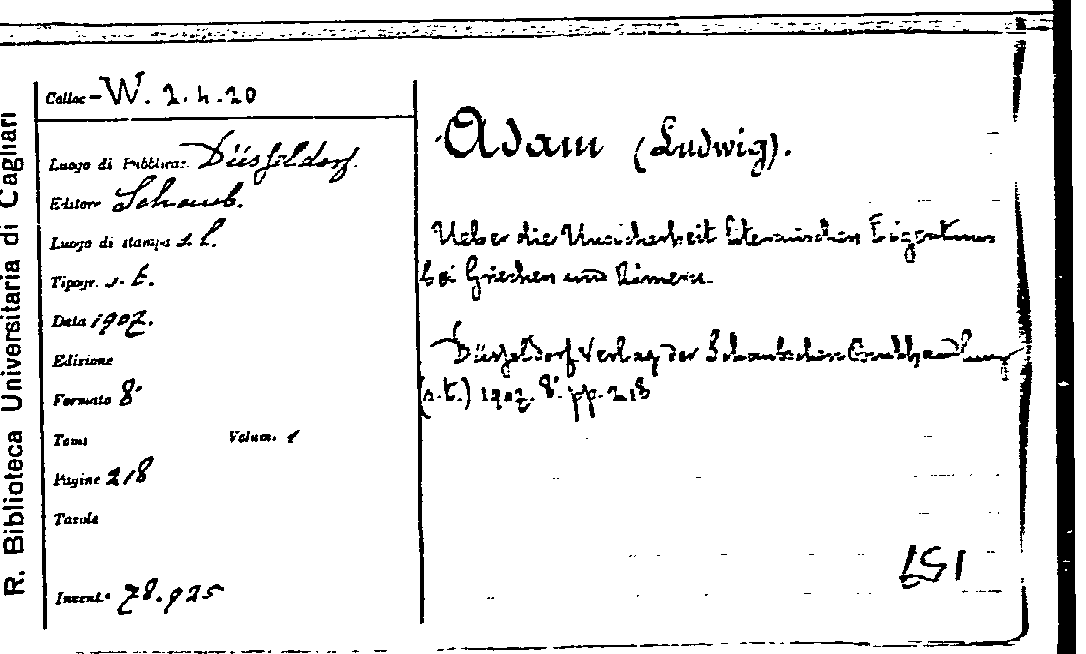 R. Biblioteca Universitaria di Cagliari
Colloc - W. 2.4.20
Luogo di Pubblicaz. Düsseldorf.
Editore Schaub.
Luogo di stampa s. l.
Tipogr. s. t.
Data 1907.
Edizione
Formato 8°
Tomi Volum. 1
Pagine 218
Tavole
Invent.° 78.925
Adam (Ludwig).
Ueber die Unsicherheit literarischen Eigentums
bei Griechen und Römern.
Düsseldorf Verlag der Schaub'schen
(s. t.) 1907. 8° pp. 218
157